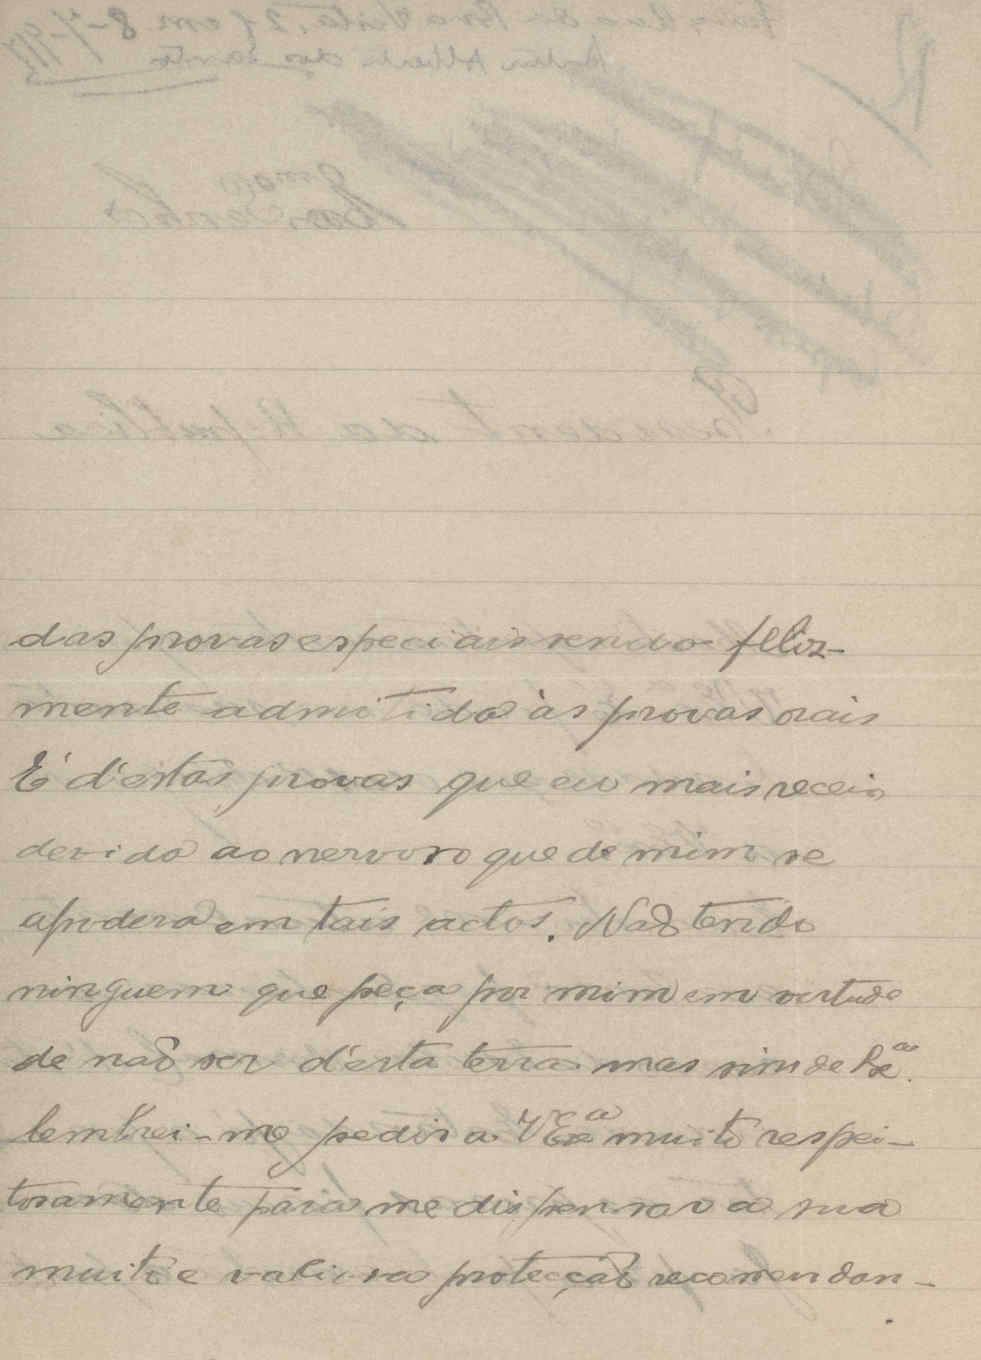 das provas especiais sendo feliz-
mente admitido às provas orais
É d'estas provas que eu mais receio
devido ao nervoso que de mim se
apodera em tais actos. Não tendo
ninguem que peça por mim em virtude
de não ser d'esta terra mas sim de
lembrei-me pedir a V Exa muito respei-
tosamente para me dispensar a sua
muito e valiosa protecção recomendan-